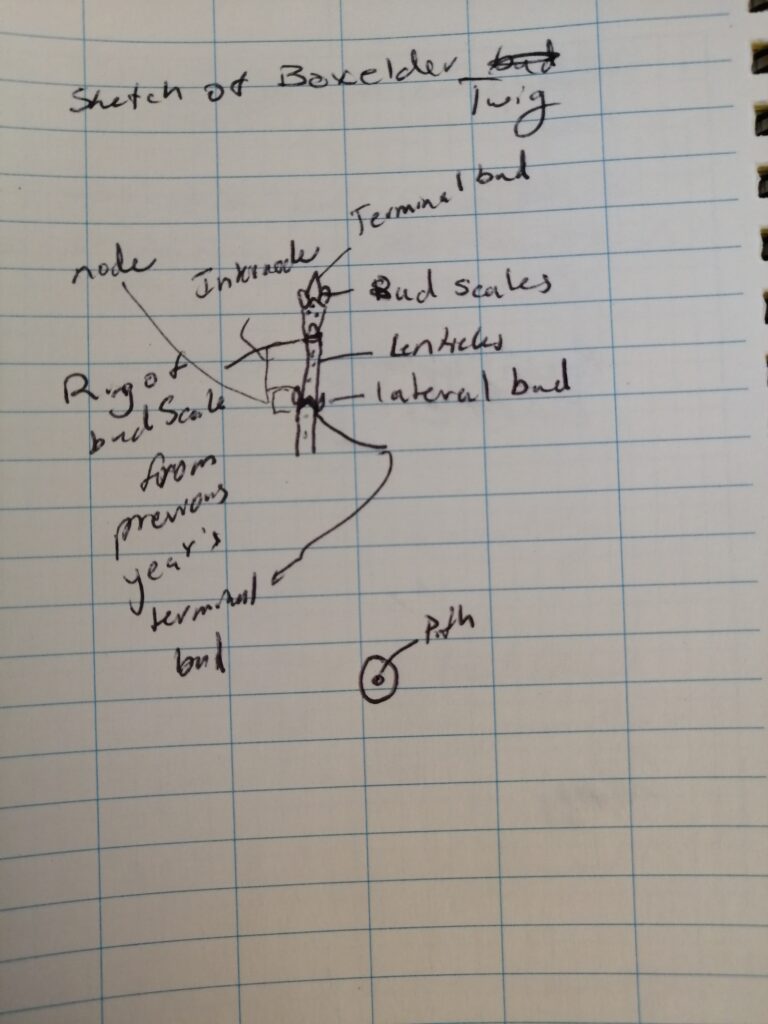 Sketch of Boxelder bud
Twig
Terminal bud
node
Internode
Bud scales
Ring of
bud Scale
from
previous
year's
terminal
bud
lenticles
lateral bud
Pith